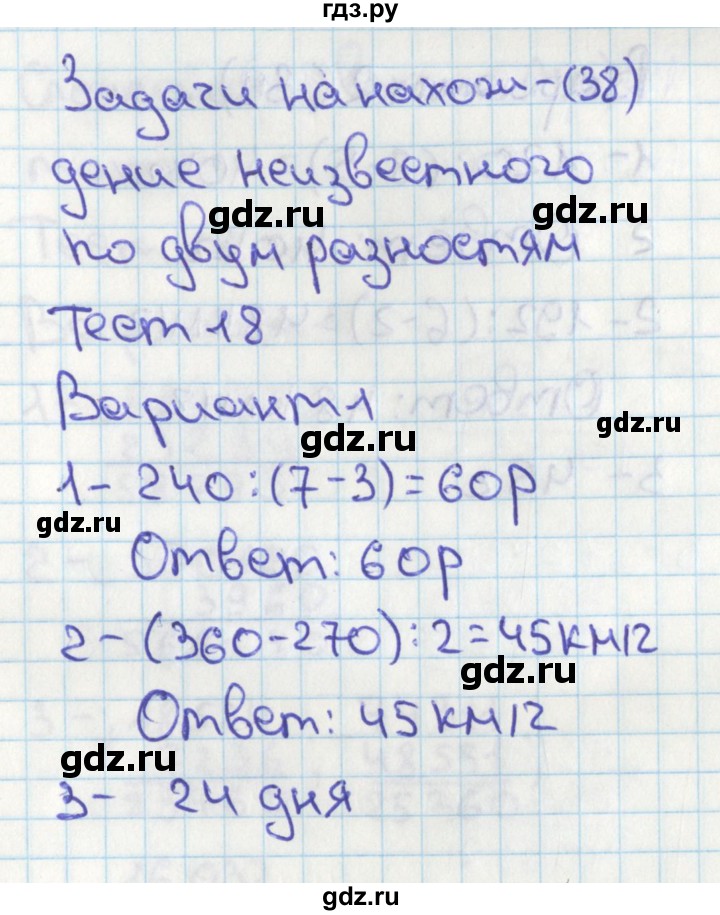 гдз.ру
Задачи на нахож-(38)
дение неизвестного
gdz.ru gdz.ru
по двум разностям
Тест 18
Вариант 1
gdz.ru gdz.ru
1- 240:(7-3)=60р
gdz.ru
Ответ: 60р
2-(360-270):2=45км/г
gdz.ru
Ответ: 45км/г
gdz.ru
3- 24 дня
gdz.ru